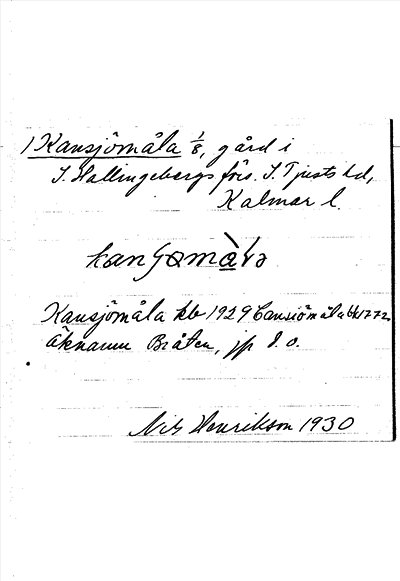 1) Kansjömåla 1/8, gård i
S. Hallingebergs förs. S. Tjusts hd,
Kalmar l.
Kansjömåla kb 1929 Cansiömåla kb 1772
Öknamn Bråten, jfr d. o.
Nils Henrikson 1930